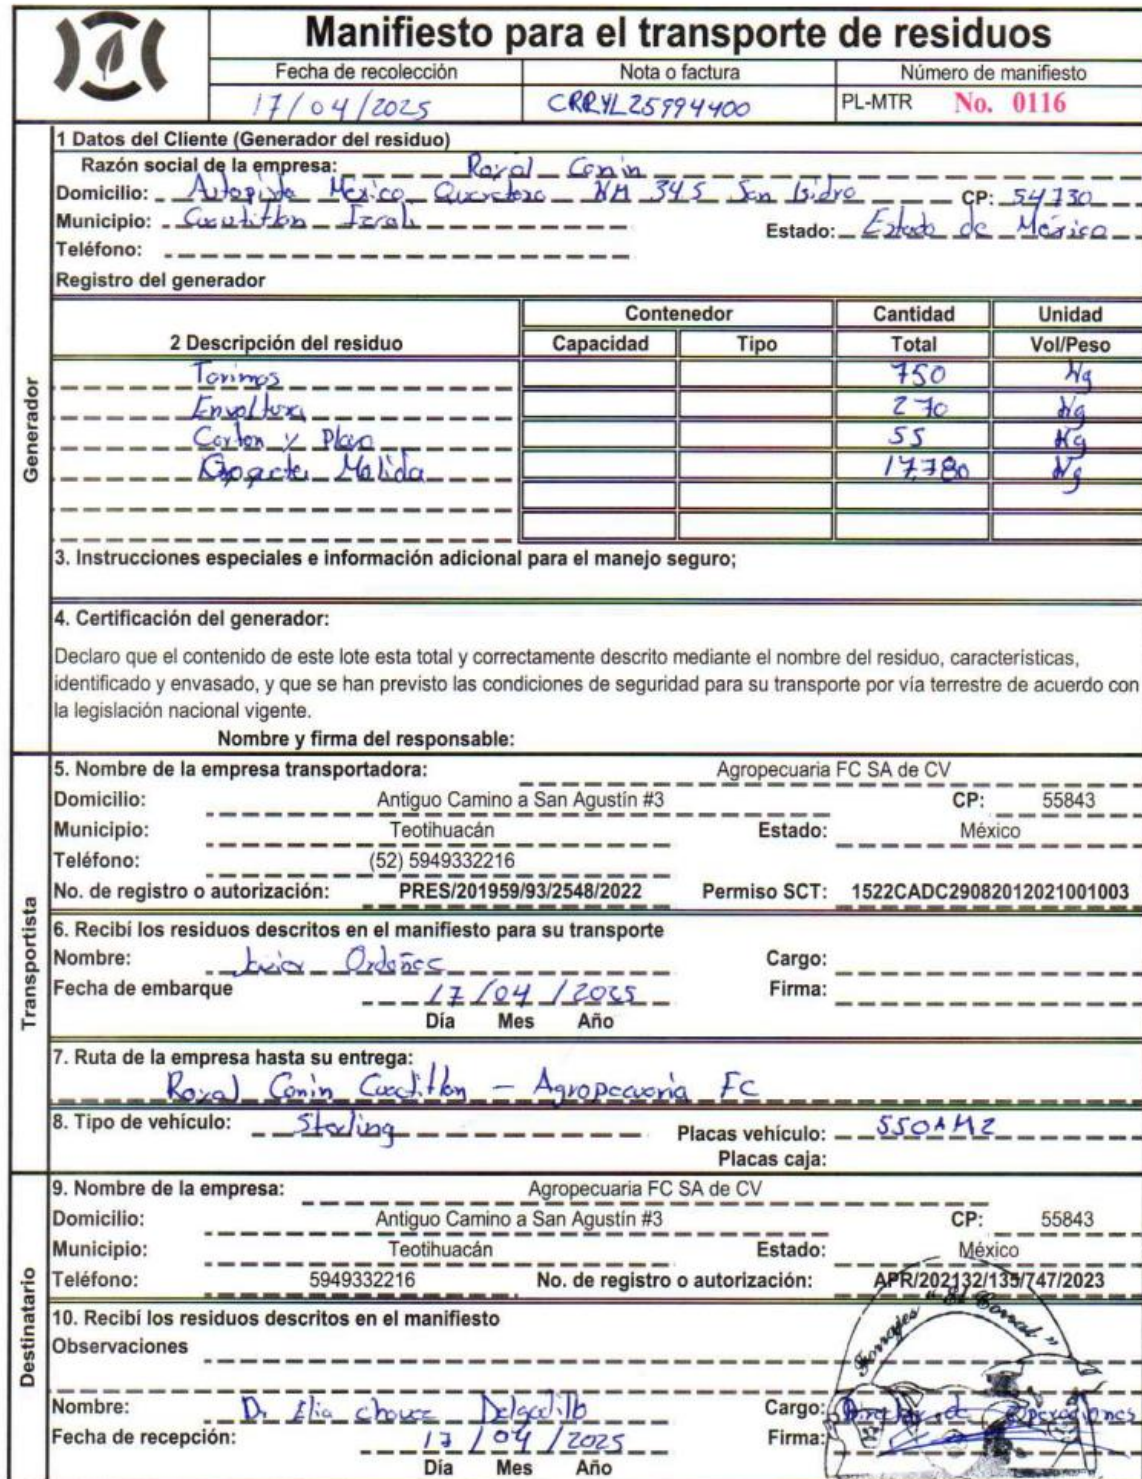 Manifiesto para el transporte de residuos
Fecha de recolección Nota o factura Número de manifiesto
17/04/2025 CRRYL25994400 PL-MTR No. 0116
1 Datos del Cliente (Generador del residuo)
Razón social de la empresa: Royal Canin
Domicilio: Autopista Mexico Queretaro KM 34.5 San Isidro CP: 54730
Municipio: Cuautitlan Izcali Estado: Estado de México
Teléfono:
Registro del generador
Contenedor Cantidad Unidad
2 Descripción del residuo Capacidad Tipo Total Vol/Peso
Tarimas 750 Kg
Envoltura 270 Kg
Carton y Playo 55 Kg
Molida 17,780 Kg
3. Instrucciones especiales e información adicional para el manejo seguro;
4. Certificación del generador:
Declaro que el contenido de este lote esta total y correctamente descrito mediante el nombre del residuo, características,
identificado y envasado, y que se han previsto las condiciones de seguridad para su transporte por vía terrestre de acuerdo con
la legislación nacional vigente.
Nombre y firma del responsable:
Generador
5. Nombre de la empresa transportadora: Agropecuaria FC SA de CV
Domicilio: Antiguo Camino a San Agustín #3 CP: 55843
Municipio: Teotihuacán Estado: México
Teléfono: (52) 5949332216
No. de registro o autorización: PRES/201959/93/2548/2022 Permiso SCT: 1522CADC29082012021001003
6. Recibí los residuos descritos en el manifiesto para su transporte
Nombre: Javier Ordoñez Cargo:
Fecha de embarque 17/04/2025 Firma:
Día Mes Año
7. Ruta de la empresa hasta su entrega:
Royal Canin Cuautitlan - Agropecuaria FC
8. Tipo de vehículo: Sterling Placas vehículo: 550AM2
Placas caja:
Transportista
9. Nombre de la empresa: Agropecuaria FC SA de CV
Domicilio: Antiguo Camino a San Agustín #3 CP: 55843
Municipio: Teotihuacán Estado: México
Teléfono: 5949332216 No. de registro o autorización: APR/202132/135/747/2023
10. Recibí los residuos descritos en el manifiesto
Observaciones
Forrajes "El Corral"
Nombre: D. Elia chavez Delgadillo Cargo: Director de Operaciones
Fecha de recepción: 17/04/2025 Firma:
Día Mes Año
Destinatario